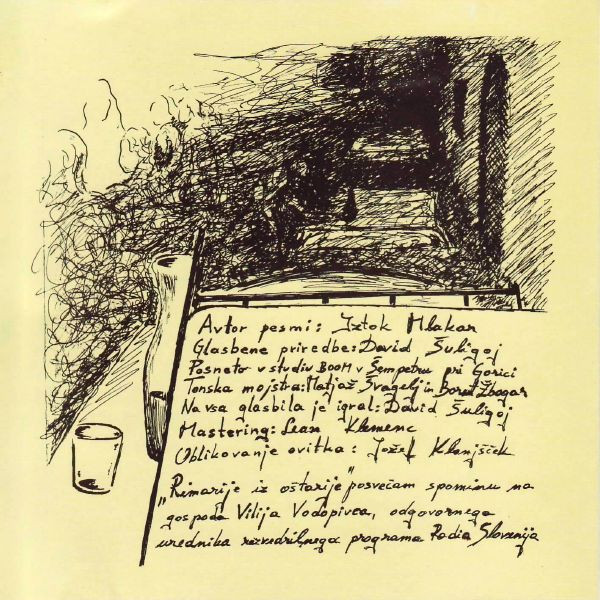 Avtor pesmi: Iztok Mlakar
Glasbene priredbe: David Šuligoj
Posneto v studiu BOOM v Šempetru pri Gorici
Tonska mojstra: Matjaž Švagelj in Borut Žbogar
Na vsa glasbila je igral: David Šuligoj
Mastering: Lean Klemenc
Oblikovanje ovitka: Jožef Klanjšček
„Rimarije iz oštarije" posvečam spominu na
gospoda Vilija Vodopivca, odgovornega
urednika razvedrilnega programa Radia Slovenija